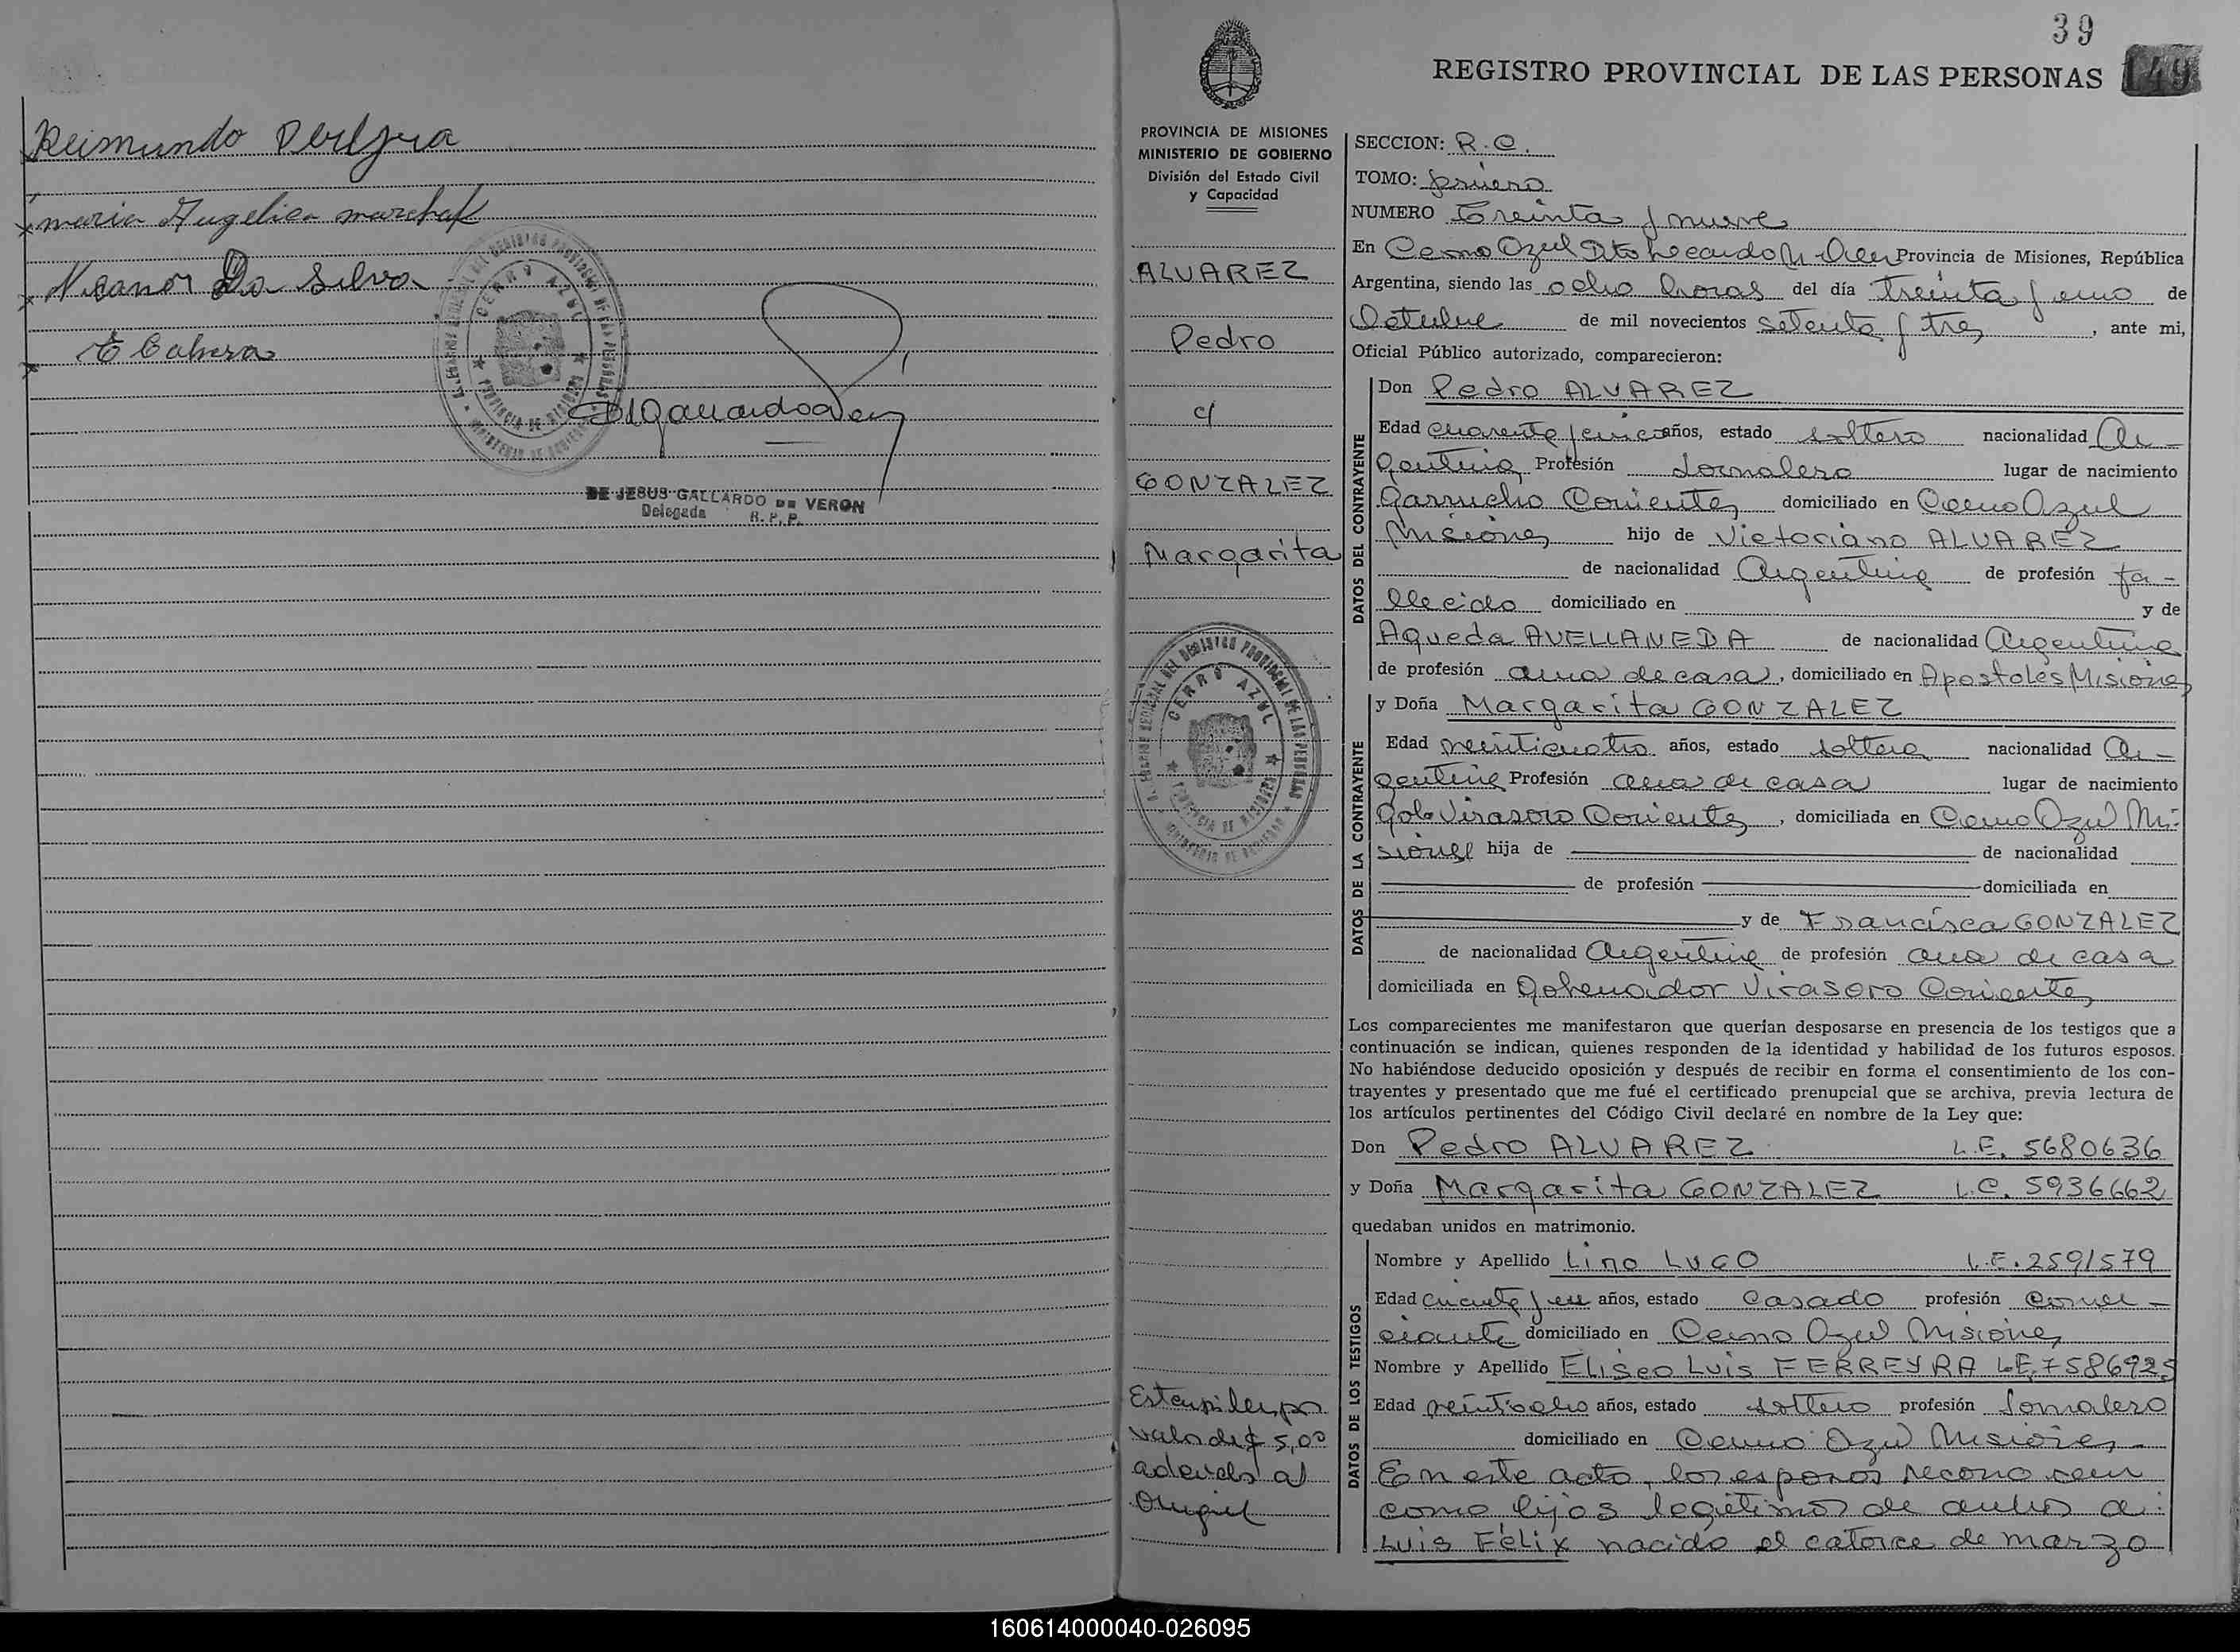 Reimundo Pereyra
maria Angelica marchak
Nicanor Da Silva
E Cabrera
DE JESUS GALLARDO DE VERON
Delegada R. P. P.
39
REGISTRO PROVINCIAL DE LAS PERSONAS
149
PROVINCIA DE MISIONES
MINISTERIO DE GOBIERNO
División del Estado Civil
y Capacidad
ALVAREZ
Pedro
c/
GONZALEZ
Margarita
CERRO AZUL
PROVINCIA DE MISIONES
Estampilla por
valor de $ 5,00
adherida al
SECCION: R.C.
TOMO: primero
NUMERO Treinta y nueve
En Cerro Azul Dpto Leandro N. Alem Provincia de Misiones, República
Argentina, siendo las ocho horas del día treinta y uno de
Octubre de mil novecientos setenta y tres, ante mi,
Oficial Público autorizado, comparecieron:
DATOS DEL CONTRAYENTE
Don Pedro ALVAREZ
Edad cuarenta y cinco años, estado soltero nacionalidad Ar-
gentina Profesión Jornalero lugar de nacimiento
Garrucho Corrientes domiciliado en Cerro Azul
Misiones hijo de Victoriano ALVAREZ
de nacionalidad Argentina de profesión fa-
llecido domiciliado en y de
Agueda AVELLANEDA de nacionalidad Argentina
de profesión ama de casa, domiciliado en Apostoles Misiones
DATOS DE LA CONTRAYENTE
y Doña Margarita GONZALEZ
Edad veinticuatro años, estado soltera nacionalidad Ar-
gentina Profesión ama de casa lugar de nacimiento
Gob. Virasoro Corrientes, domiciliada en Cerro Azul Mi-
siones hija de de nacionalidad
de profesión domiciliada en
y de Francisca GONZALEZ
de nacionalidad Argentina de profesión ama de casa
domiciliada en Gobernador Virasoro Corrientes
Los comparecientes me manifestaron que querían desposarse en presencia de los testigos que a
continuación se indican, quienes responden de la identidad y habilidad de los futuros esposos.
No habiéndose deducido oposición y después de recibir en forma el consentimiento de los con-
trayentes y presentado que me fué el certificado prenupcial que se archiva, previa lectura de
los artículos pertinentes del Código Civil declaré en nombre de la Ley que:
Don Pedro ALVAREZ L.E. 5680636
y Doña Margarita GONZALEZ L.C. 5936662
quedaban unidos en matrimonio.
DATOS DE LOS TESTIGOS
Nombre y Apellido Lino LUGO L.E. 2591579
Edad años, estado Casado profesión comer-
ciante domiciliado en Cerro Azul Misiones
Nombre y Apellido Eliseo Luis FERREYRA L.E. 7586925
Edad veintiocho años, estado soltero profesión Jornalero
domiciliado en Cerro Azul Misiones
En este acto, los esposos reconocen
como hijos legítimos de ambos a:
Luis Félix nacido el catorce de marzo
160614000040-026095